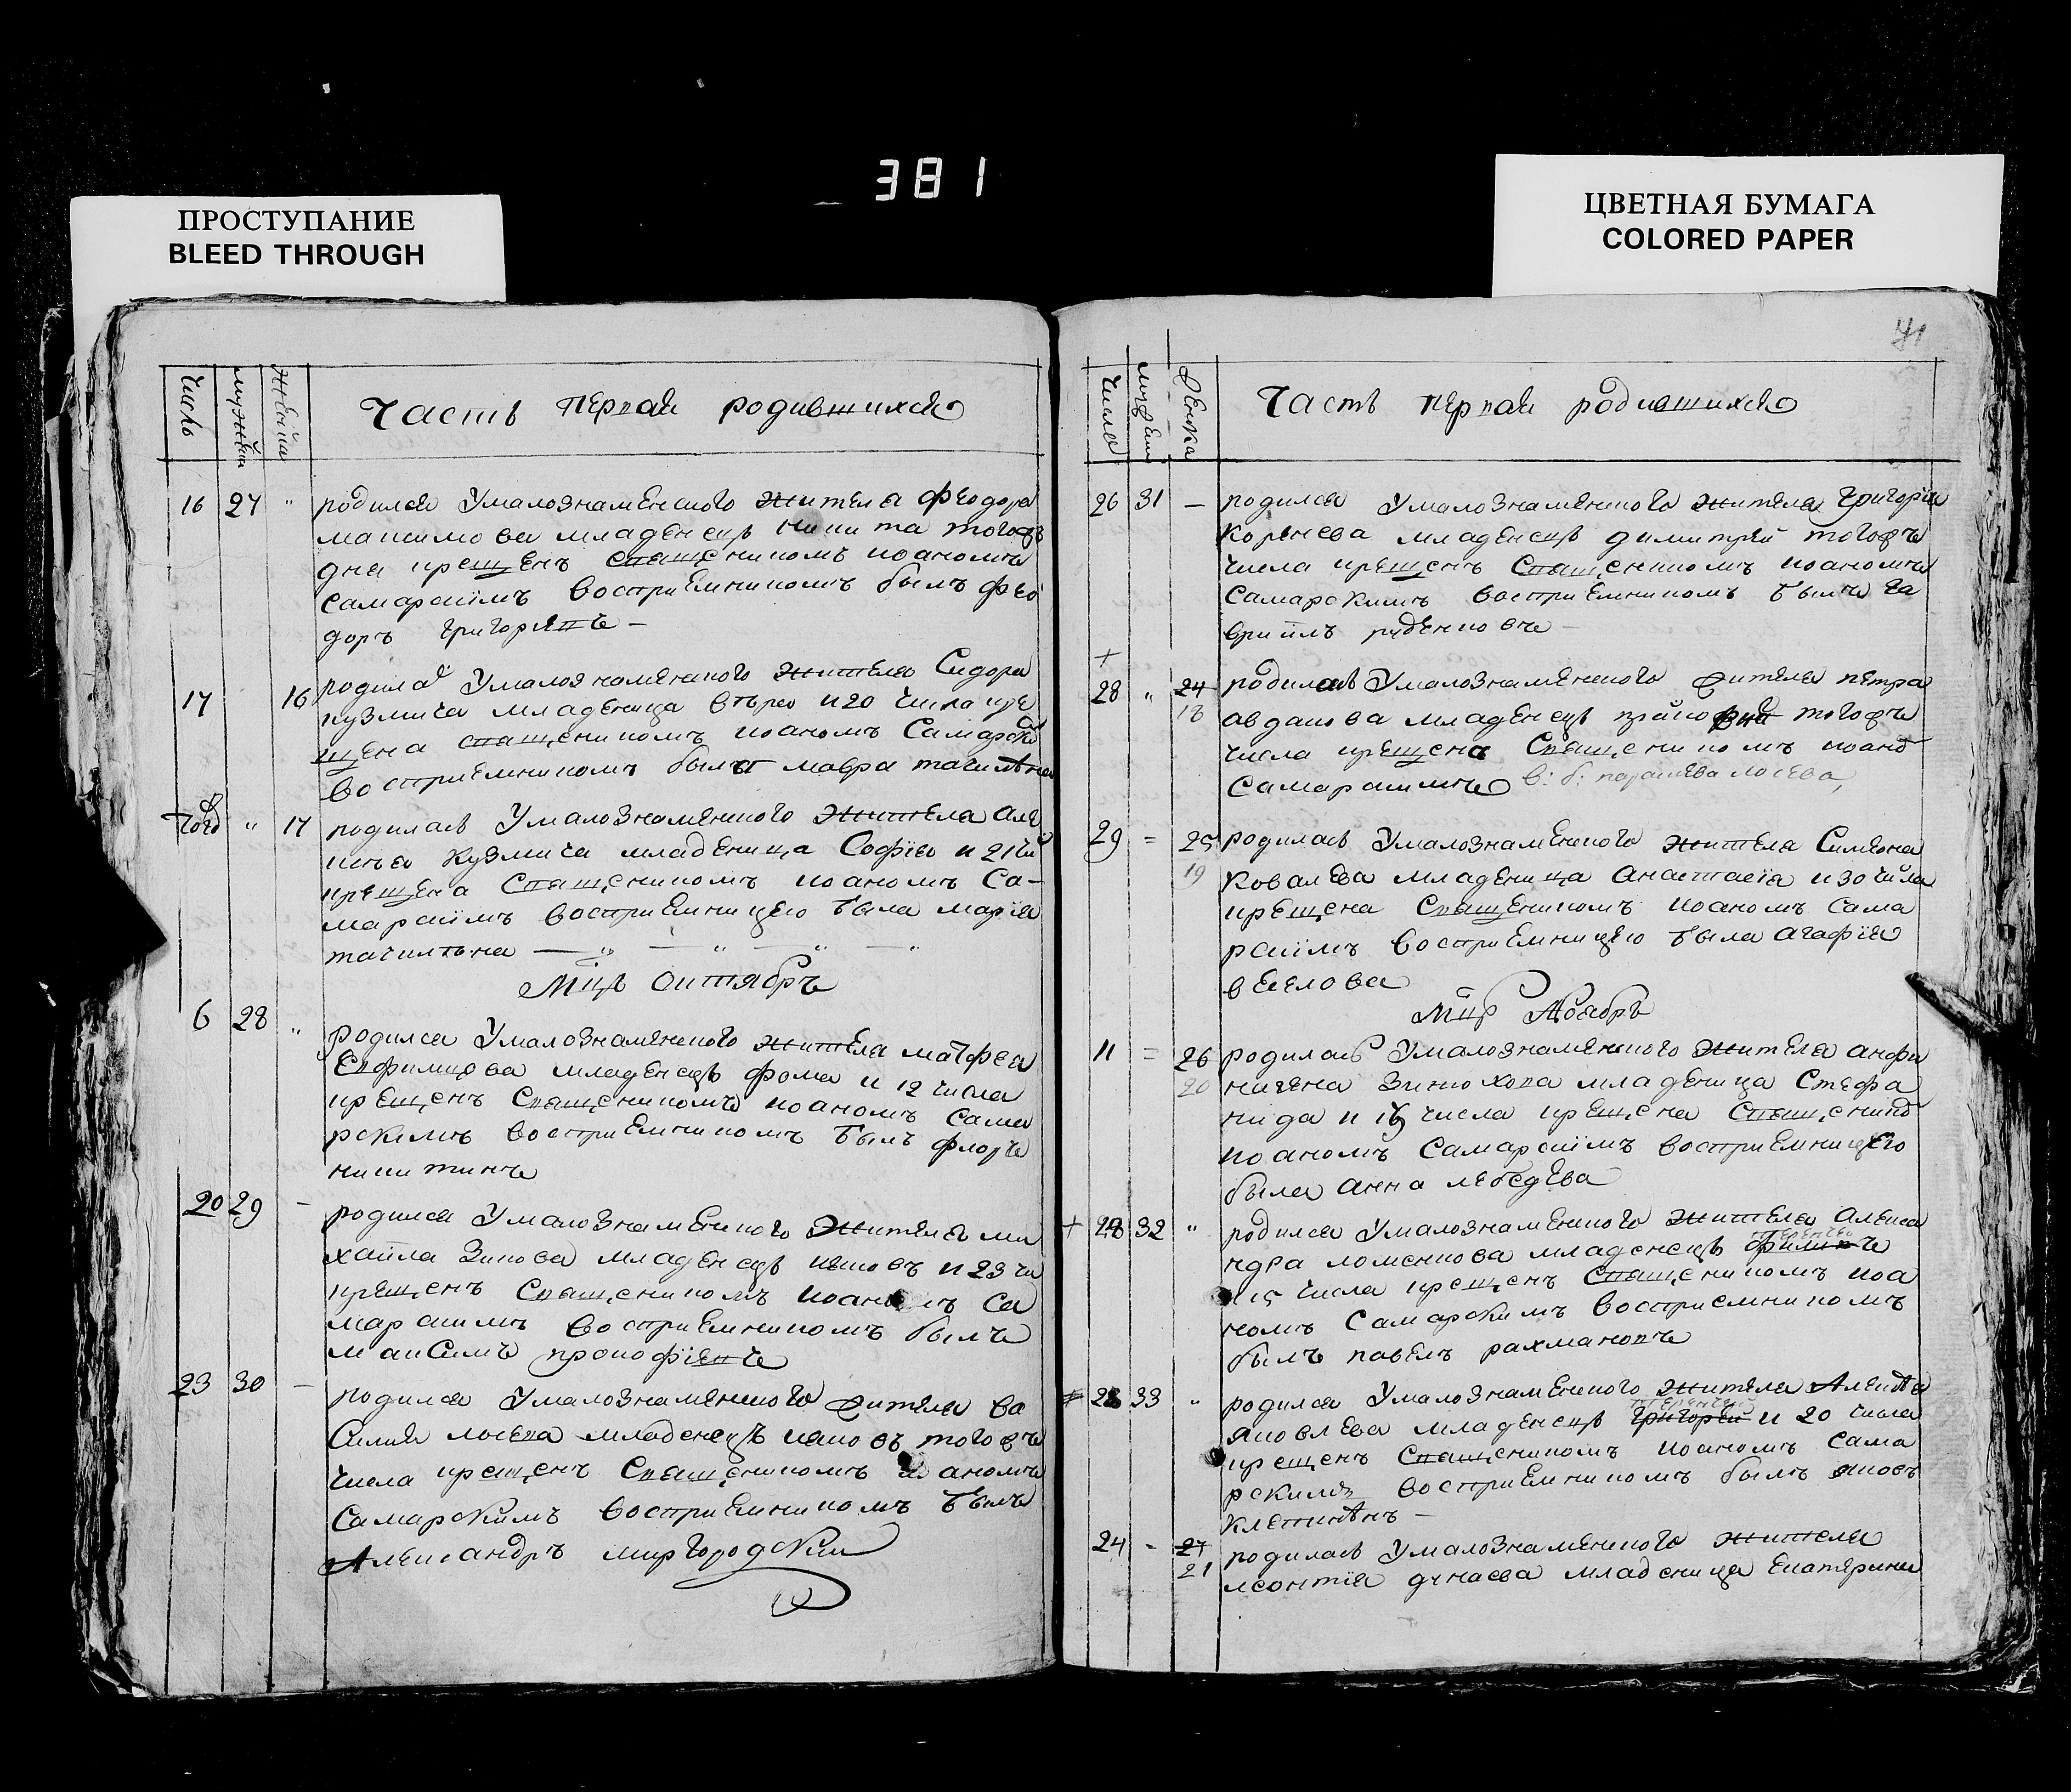 381
ПРОСТУПАНИЕ
BLEED THROUGH
ЦВЕТНАЯ БУМАГА
COLORED PAPER
число
мужеска
женска
Часть первая родившихся
16 27 " родился Умалознаменского жителя феодора
максимова младенецъ никита тогожъ
дня крещенъ священикомъ иоаномъ
самарскiмъ восприемникомъ былъ фео
доръ григорьевъ –
17 16 родилаc Умалознаменского жителя Сидора
кузмича младеница и 20 числа кре
щена священикомъ иоаномъ Самарски
восприемникомъ была мавра
того " 17 родилась Умалознаменского жителя але
кузмича младеница Софiя и 21 чи
крещена Священикомъ иоаномъ Са-
марскiмъ восприемницею была марiя
Мцъ октябръ
6 28 " родился Умалознаменского жителя матфеа
Ефимцова младенецъ фома и 12 числа
крещенъ Священикомъ иоаномъ сама
рскимъ восприемникомъ былъ флоръ
никитинъ
20 29 – родился Умалознаменского жителя ми
хаила Зикова младенецъ иаковъ и 23 чи
крещенъ Священикомъ иоаномъ Са
марскимъ восприемникомъ былъ
максимъ прокофiевъ
23 30 – родился Умалознаменского жителя ва
Силия лосева младенецъ иаковъ тогожъ
числа крещенъ Священикомъ иоаномъ
Самарскимъ восприемникомъ былъ
Александръ миргородский
41
Числа
мужеска
женска
Часть первая родившихся
26 31 – родился Умалознаменского жителя григория
Коренева младенецъ димитрей тогожъ
числа крещенъ Священикомъ иоаномъ
Самарскимъ восприемникомъ былъ га
врiилъ руденковъ –
+
28 " 24 родилась Умалознаменского жителя петра
18 авдакова младенецъ тогожъ
числа крещена Священикомъ иоано
Самарскимъ в: б: лосева
29 = 25 родилась Умалознаменского жителя Симеона
19 Ковалева младеница анастасiя и 30 числа
крещена Священикомъ иоаномъ сама
рскiмъ восприемницею была агафiя
веселова
Мцъ Ноябръ
11 = 26 родилась Умалознаменского жителя анфи
20 ногена Зинюхова младеница Стефа
нида и числа крещена Священико
иоаномъ Самарскiмъ восприемницею
была анна лебедева
+ 32 " родился Умалознаменского жителя алекса
ндра ломенкова младенецъ филипъ
и 15 числа крещенъ Священикомъ иоа
номъ Самарскимъ восприемникомъ
былъ павелъ рахмановъ
33 " родился Умалознаменского жителя
яковлева младенецъ григорей и 20 числа
крещенъ Священикомъ иоаномъ сама
рскимъ восприемникомъ былъ яковъ
24 - 27 родилась Умалознаменского жителя
21 леонтiя дунаева младеница Екатярина